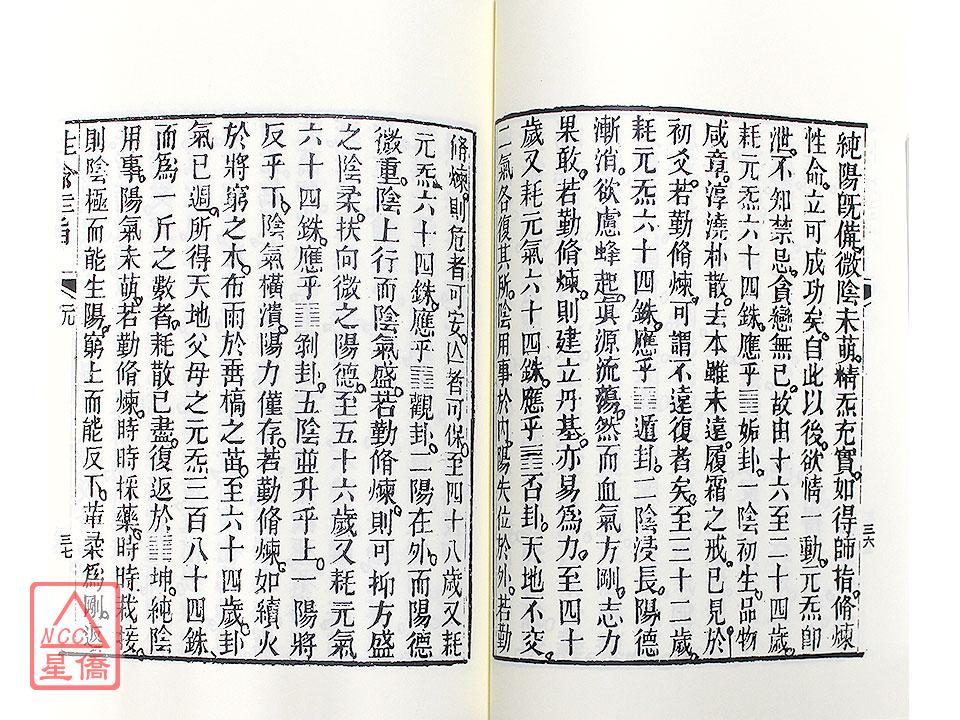 純陽既備。微陰未萌。精炁充實。如得師指。脩煉
性命。立可成功矣。自此以後。欲情一動。元炁卽
泄。不知禁忌。貪戀無已。故由十六至二十四歲。
耗元炁六十四銖。應乎䷫姤卦。一陰初生。品物
咸章。淳澆朴散。去本雖未遠。履霜之戒。已見於
初爻。若勤脩煉。可謂不遠復者矣。至三十二歲。
耗元炁六十四銖。應乎䷠遁卦。二陰浸長。陽德
漸消。欲慮蜂起。眞源流蕩。然而血氣方剛。志力
果敢。若勤脩煉。則建立丹基。亦易爲力。至四十
歲。又耗元氣六十四銖。應乎䷋否卦。天地不交。
二氣各復其所。陰用事於內。陽失位於外。若勤
三六
脩煉。則危者可安。亾者可保。至四十八歲。又耗
元炁六十四銖。應乎䷓觀卦。二陽在外。而陽德
微。重陰上行而陰氣盛。若勤脩煉。則可抑方盛
之陰柔。扶向微之陽德。至五十六歲。又耗元氣
六十四銖。應乎䷖剝卦。五陰並升乎上。一陽將
反乎下。陰氣橫潰。陽力僅存。若勤脩煉。如續火
於將窮之木。布雨於垂槁之苗。至六十四歲。卦
氣已週。所得天地父母之元炁三百八十四銖
而爲一斤之數者。耗散已盡。復返於䷁坤。純陰
用事。陽氣未萌。若勤脩煉。時時採藥。時時栽接。
則陰極而能生陽。窮上而能反下。革柔爲剛。返
性命圭旨
元
三七
NCC
星僑